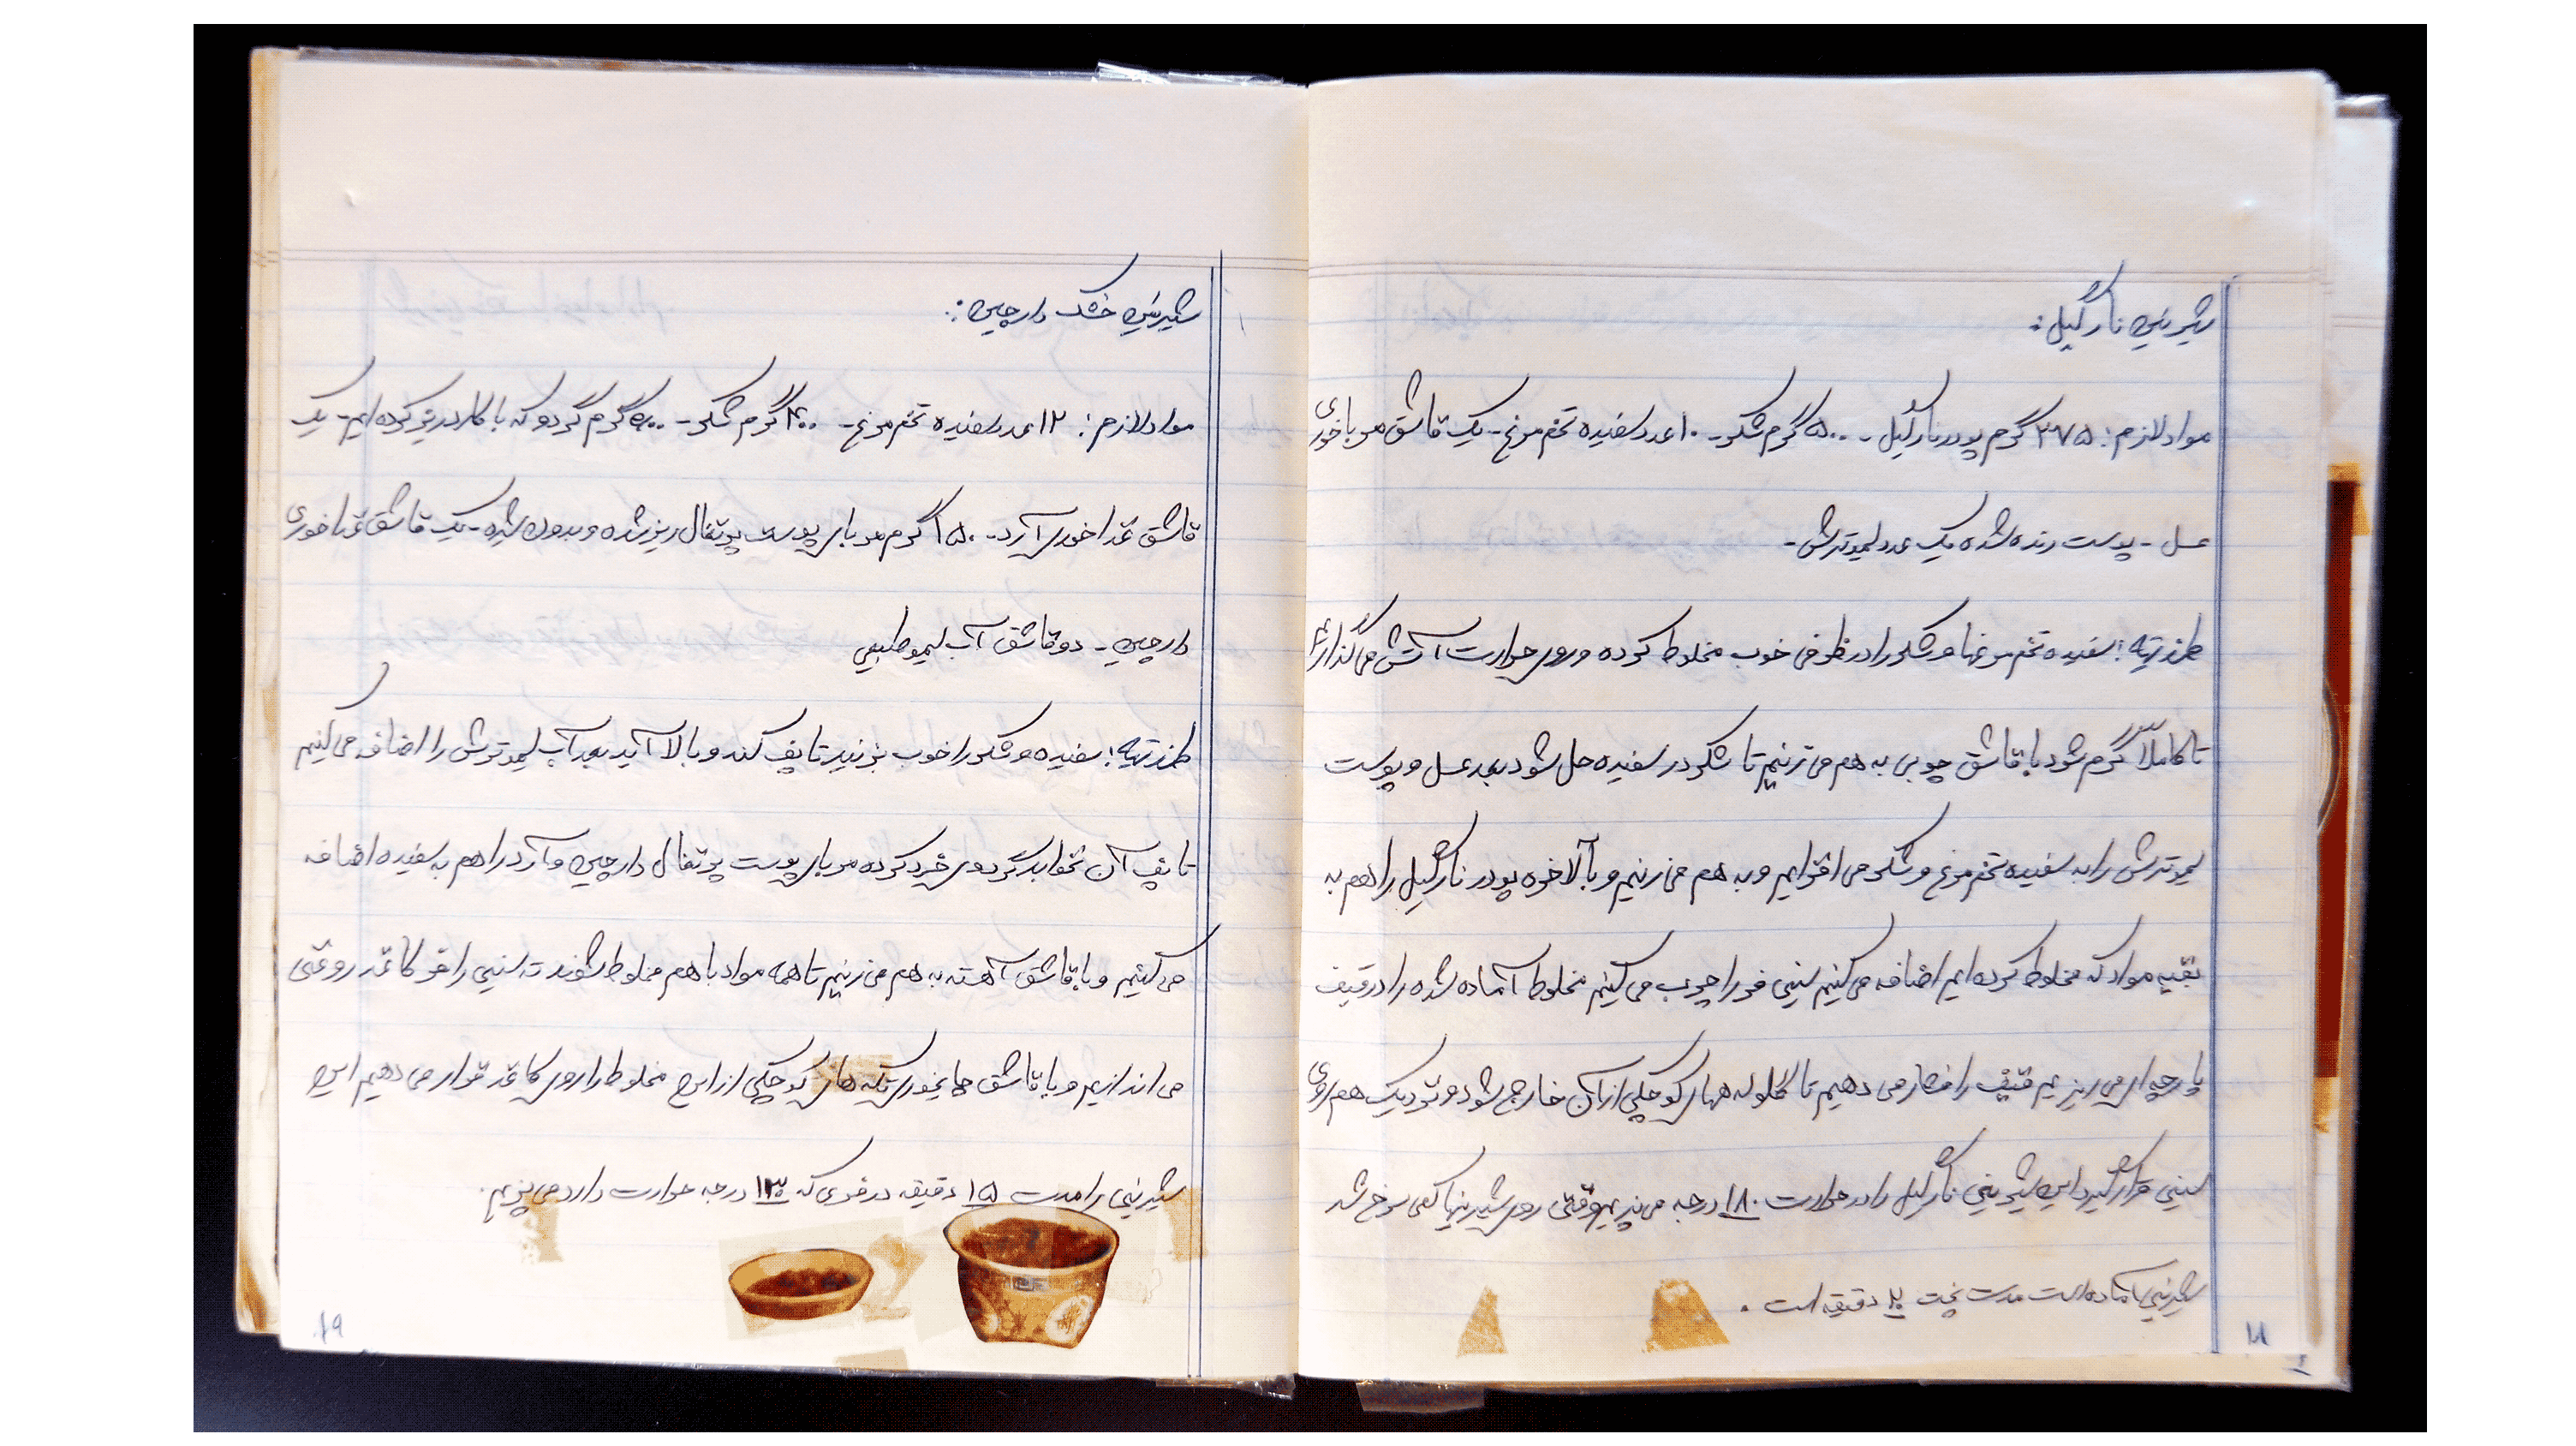 شیرینی نارگیل:
مواد لازم: ۳۷۵ گرم پودر نارگیل - ۵۰۰ گرم شکر - ۱۰ عدد سفیده تخم مرغ - یک قاشق مرباخوری
عسل - پوست رنده شده یک عدد لیموترش -
طرز تهیه: سفیده تخم مرغها و شکر را در ظرفی خوب مخلوط کرده و روی حرارت آتش می گذاریم
تا کاملاً گرم شود با قاشق چوبی به هم می زنیم تا شکر در سفیده حل شود بعد عسل و پوست
لیموترش را به سفیده تخم مرغ و شکر می افزایم و به هم می زنیم و بالاخره پودر نارگیل را هم به
بقیه مواد که مخلوط کرده ایم اضافه می کنیم سینی فر را چرب می کنیم مخلوط آماده شده را در قیف
پارچه ای می ریزیم قیف را فشار می دهیم تا گلوله های کوچکی از آن خارج شود و نزدیک هم روی
سینی قرار گیرد این شیرینی نارگیل را در حرارت ۱۸۰ درجه می پزیم وقتی روی شیرینها کمی سرخ شد
شیرینی آماده است مدت پخت دقیقه است .
شیرینی خشک دارچین:
مواد لازم: ۱۲ عدد سفیده تخم مرغ - ۴۰۰ گرم شکر - ۵۰۰ گرم گردو که با کارد ریز کرده ایم - یک
قاشق غذاخوری آرد - ۱۵۰ گرم مربای پوست پرتقال ریز شده و بدون شیره - یک قاشق غذاخوری
دارچین - دو قاشق آب لیمو طبیعی
طرز تهیه: سفیده و شکر را خوب بزنید تا پف کند و بالا آید بعد آب لیموترش را اضافه می کنیم
تا پف آن نخوابد گردوی خرد کرده مربای پوست پرتقال دارچین و آرد را هم به سفیده اضافه
می کنیم و با قاشق آهسته به هم می زنیم تا همه مواد با هم مخلوط شوند ته سینی را فر کاغذ روغنی
می اندازیم و با قاشق چایخوری تکه های کوچکی از این مخلوط را روی کاغذ قرار می دهیم این
شیرینی را مدت ۱۵ دقیقه در فری که ۱۳۰ درجه حرارت دارد می پزیم.
۱۹